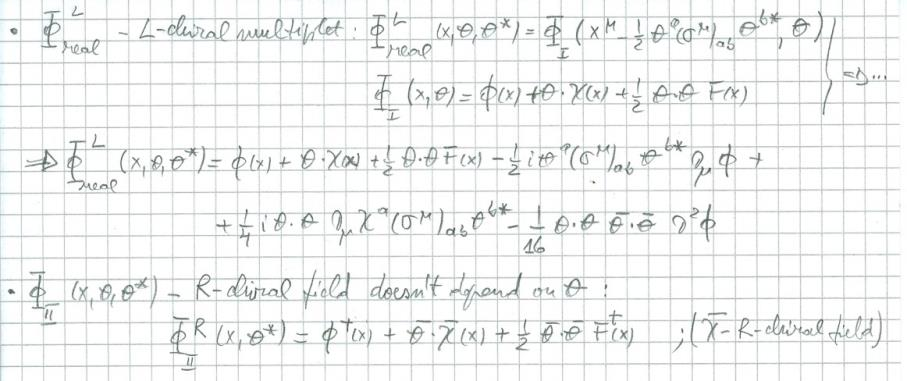 • Φ^L_real - L-chiral multiplet: Φ^L_real (x,θ,θ*) = Φ_I (x^μ - 1/2 θ^a(σ^μ)_ab θ^b*, θ)
Φ_I (x,θ) = ϕ(x) + θ·χ(x) + 1/2 θ·θ F(x) } ⇒ ...
⇒ Φ^L_real (x,θ,θ*) = ϕ(x) + θ·χ(x) + 1/2 θ·θ F(x) - 1/2 i θ^a(σ^μ)_ab θ^b* ∂_μ ϕ +
+ 1/4 i θ·θ ∂_μ χ^a (σ^μ)_ab θ^b* - 1/16 θ·θ θ̄·θ̄ ∂²ϕ
• Φ_II (x,θ,θ*) - R-chiral field doesn't depend on θ :
Φ^R_II (x,θ*) = ϕ†(x) + θ̄·χ̄(x) + 1/2 θ̄·θ̄ F†(x) ; (χ̄ - R-chiral field)